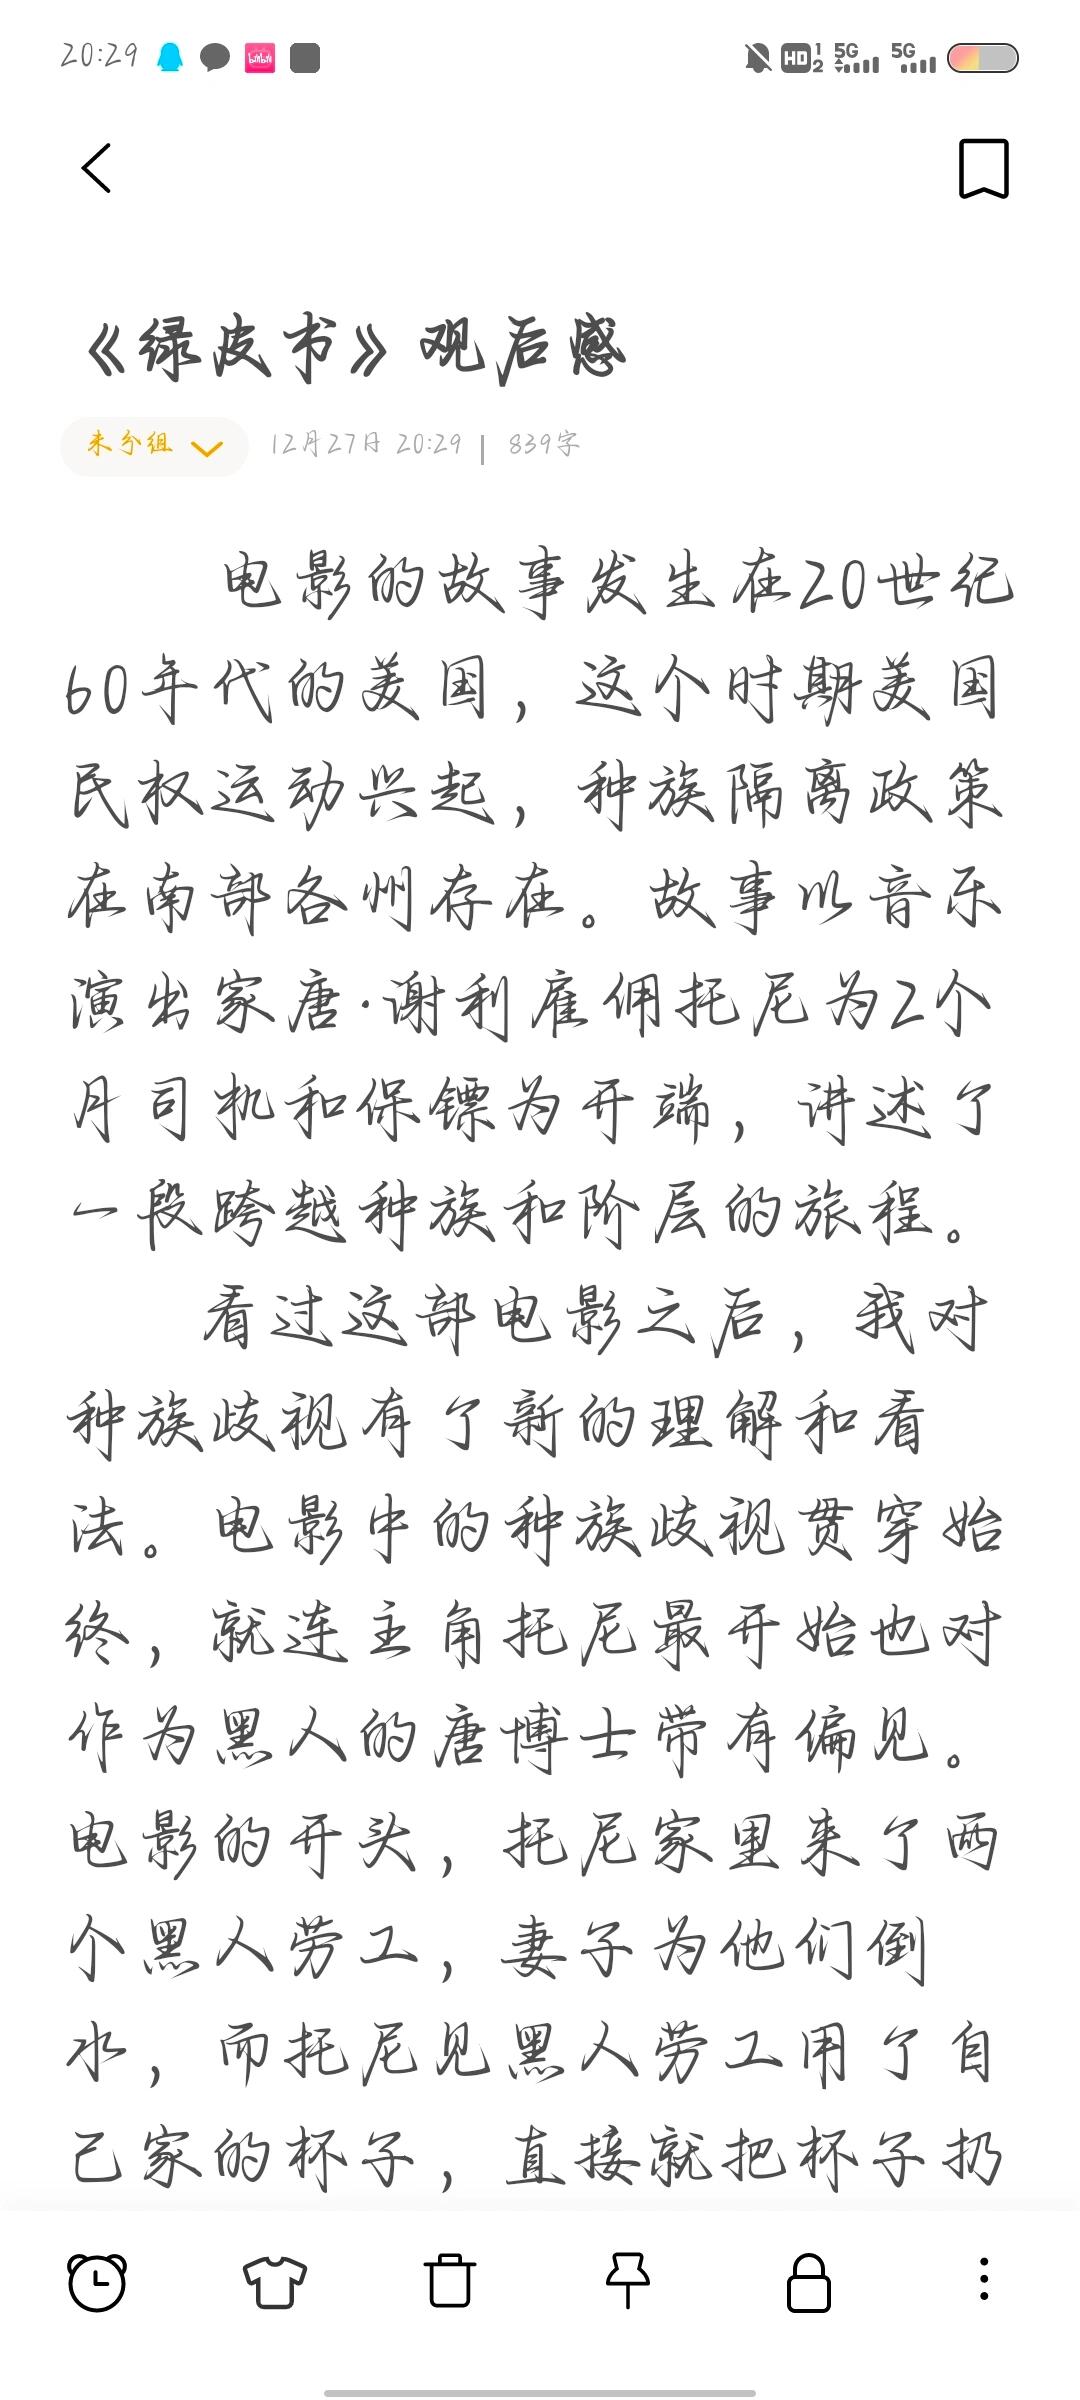 20:29 bilibili HD 1 2 5G 5G
《绿皮书》观后感
未分组 12月27日 20:29 | 839字
电影的故事发生在20世纪
60年代的美国，这个时期美国
民权运动兴起，种族隔离政策
在南部各州存在。故事以音乐
演出家唐·谢利雇佣托尼为2个
月司机和保镖为开端，讲述了
一段跨越种族和阶层的旅程。
看过这部电影之后，我对
种族歧视有了新的理解和看
法。电影中的种族歧视贯穿始
终，就连主角托尼最开始也对
作为黑人的唐博士带有偏见。
电影的开头，托尼家里来了两
个黑人劳工，妻子为他们倒
水，而托尼见黑人劳工用了自
己家的杯子，直接就把杯子扔